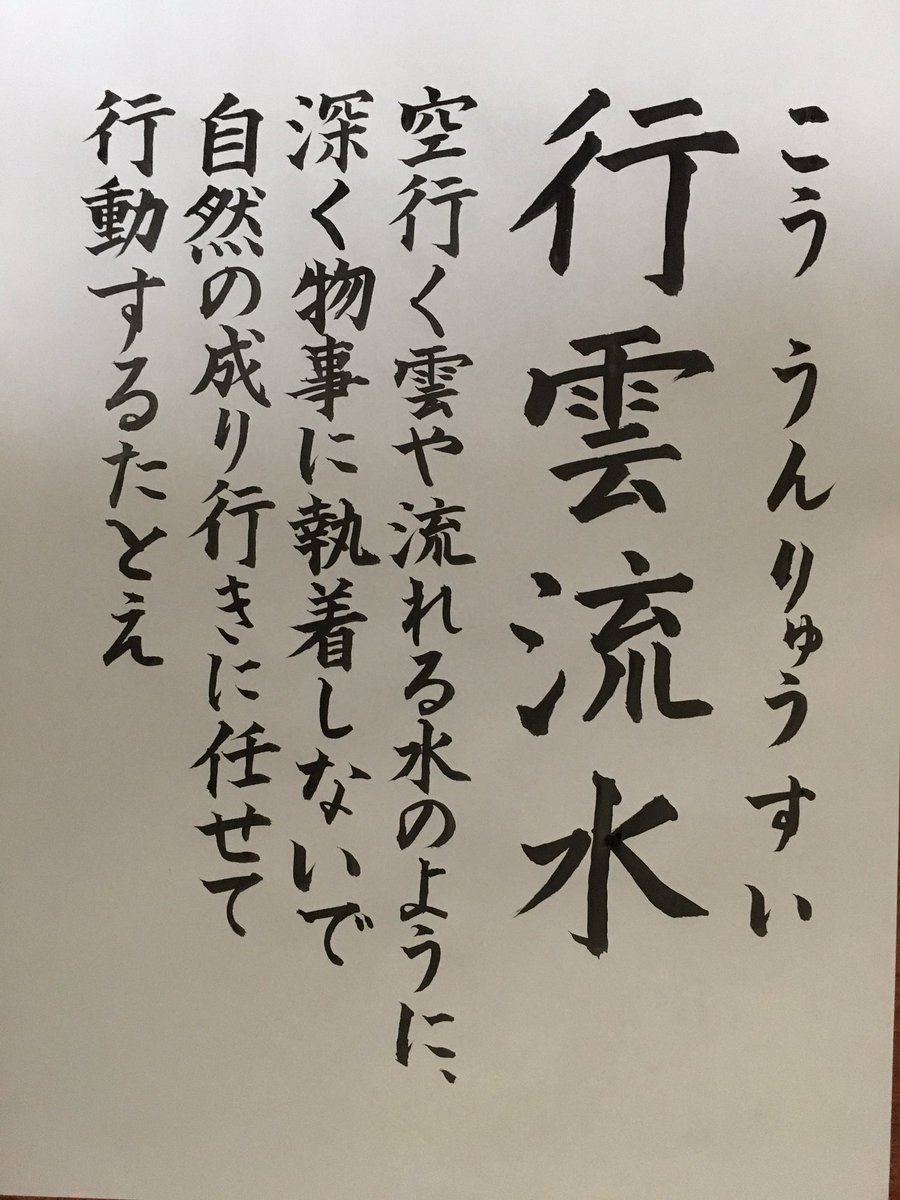 こううんりゅうすい
行雲流水
空行く雲や流れる水のように、
深く物事に執着しないで
自然の成り行きに任せて
行動するたとえ